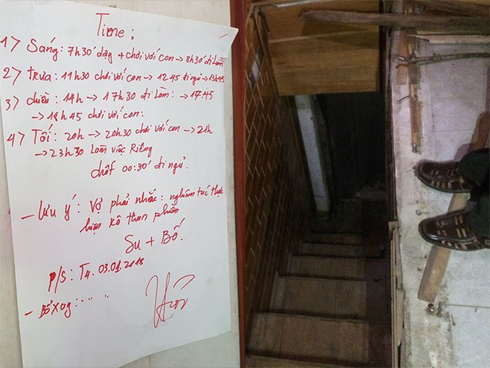 Time:
1) Sáng: 7h30' dậy + chơi với con → 8h30 đi làm
2) trưa: 11h30 chơi với con → 12h45 đi ngủ → 13h45
3) chiều: 14h → 17h30 đi làm: → 17h45
→ 18h45 chơi với con:
4) Tối: 20h → 20h30 chơi với con → 21h
→ 23h30 Làm việc Riêng
chốt 00:30' đi ngủ.
- Lưu ý: Vợ phải nhắc: nghiêm túc thực
hiện kô than phiền
Su + Bố.
P/S: T4. 03.01.2018